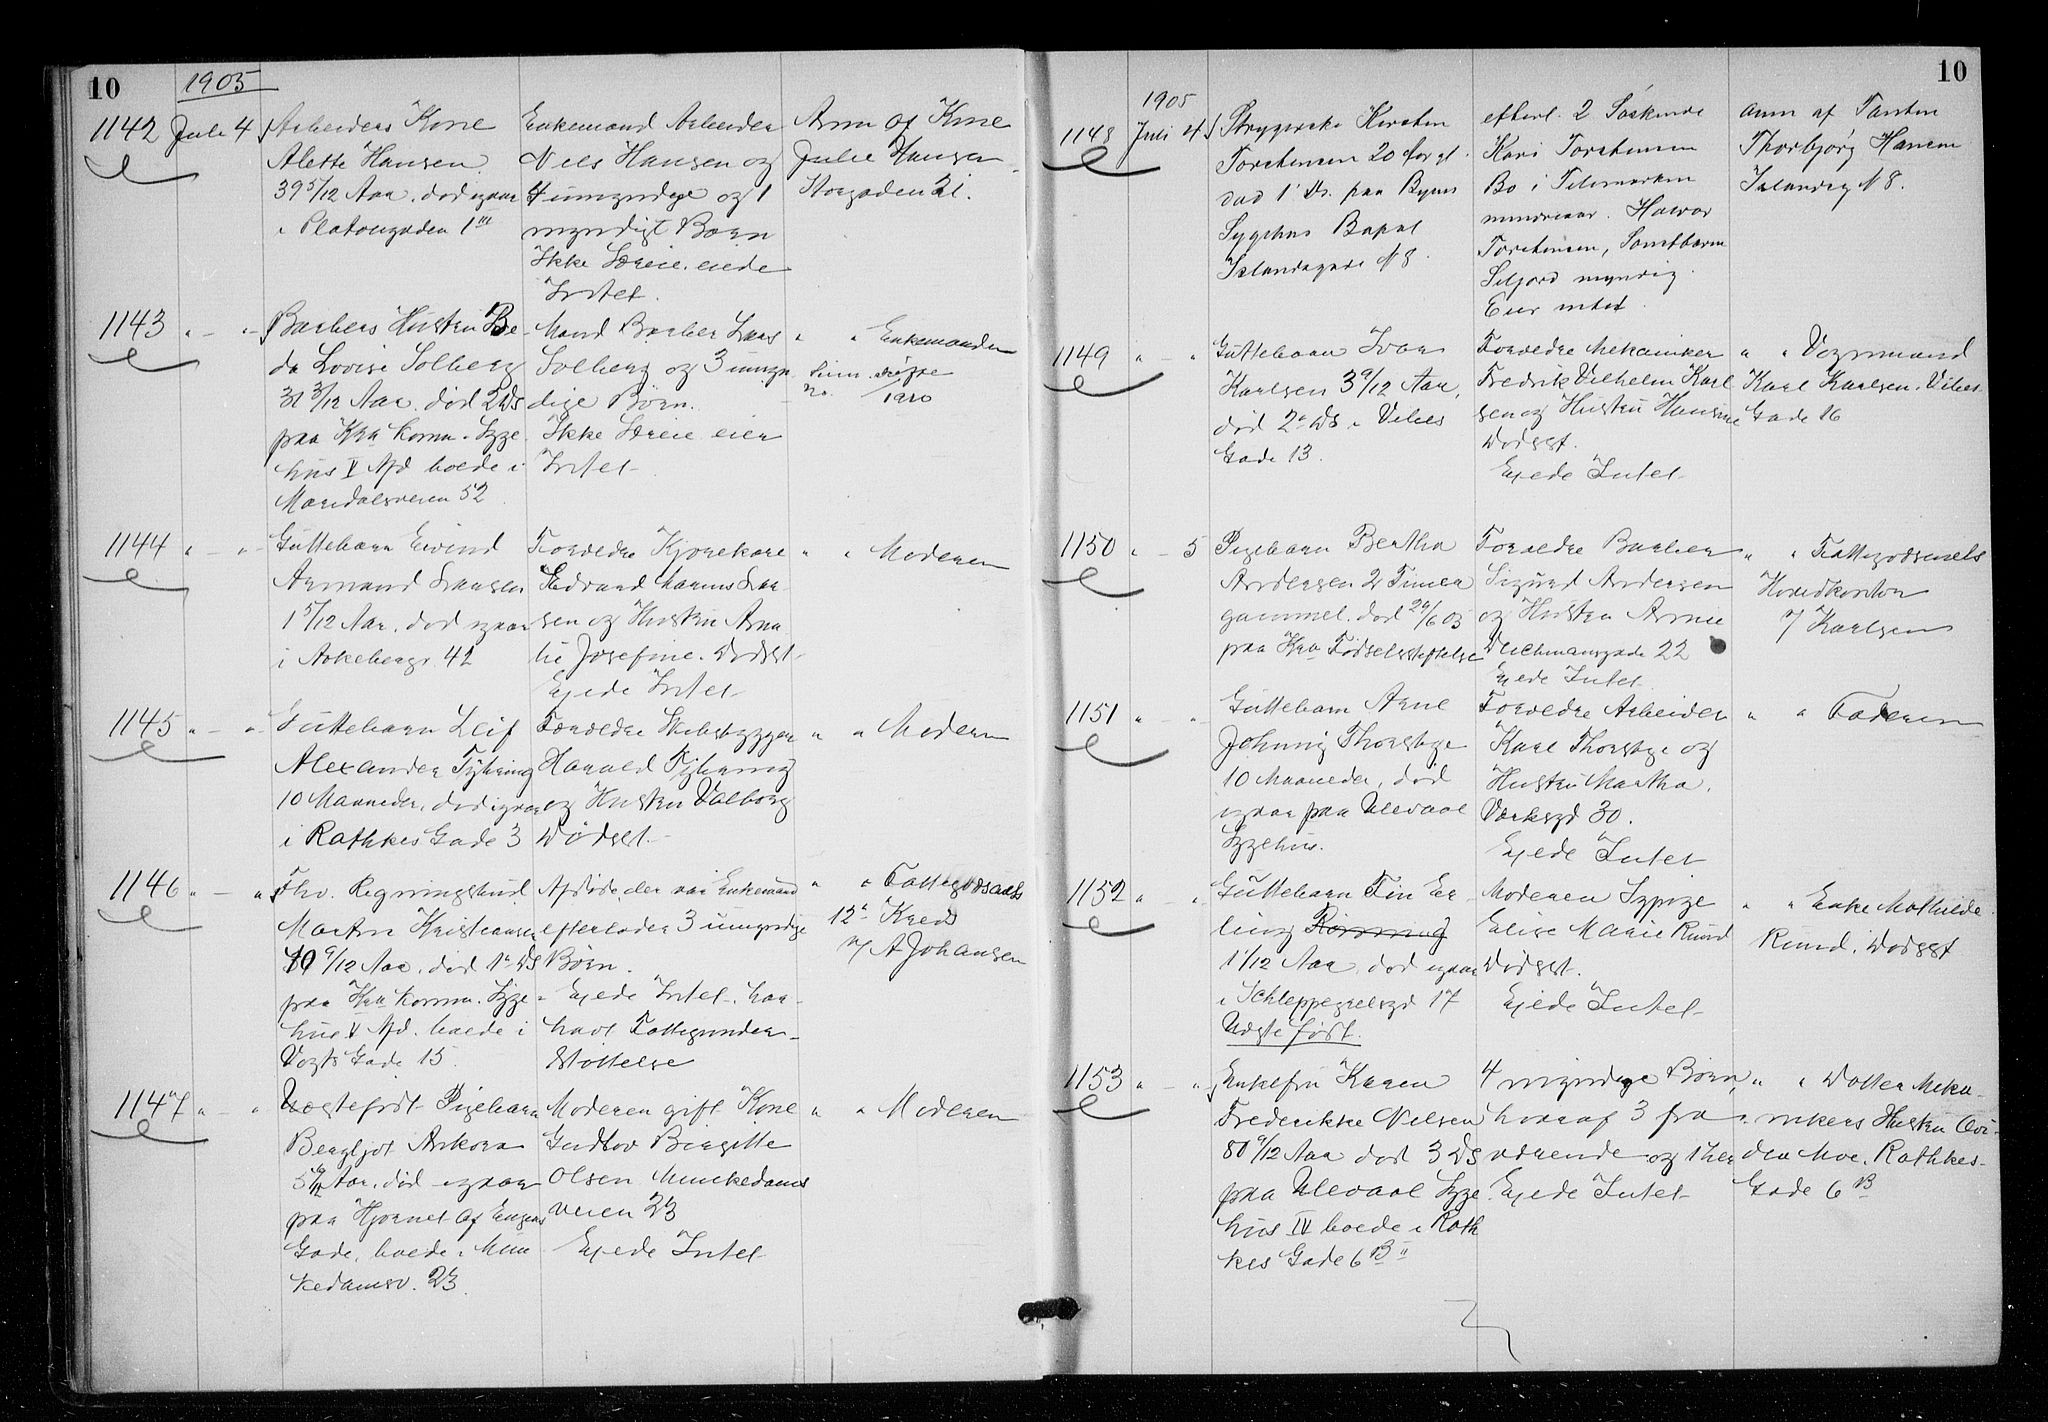 10
1905
1142 Juli 4
Arbeiders Kone
Alette Hansen
39 5/12 Aar. død igaar
i Platousgaden 1 III
Enkemand Arbeider
Nils Hansen og
4 umyndige og 1
myndigt Barn
Ikke Særeie. eiede
Intet.
Anm af Kone
Julie Hansen
Storgaden 21.
1143 " — "
Barbers Hustru Be-
da Lovise Solberg
31 3/12 Aar. død 2 ds
paa Kra Komm. Syge-
hus V Afd boede i
Maridalsveien 52
Mand Barber Lars
Solberg og 3 umyn-
dige Børn.
Ikke Særeie eier
Intet
" " Enkemanden
1910
1144 " — "
Guttebarn Eivind
Armand Larsen
1 5/12 Aar. død igaar
i Aakebergv. 42
Forældre Kjørekarl
Edvard Marius Lar-
sen og Hustru Ama-
lie Josefine. Dødsst.
Eiede Intet
" " Moderen
1145 " — "
Guttebarn Leif
Alexander Fyhring
10 Maaneder, død igaar
i Rathkes Gade 3
Forældre Skibsbygger
Harald Fyhring
og Hustru Valborg
Dødsst.
" " Moderen
1146 " — "
Fhv. Regningsbud
Martin Kristiansen
9/12 Aar. død 1ste ds
paa Kra Komm. Syge-
hus V Afd. boede i
Vogts Gade 15
Afdøde, der var Enkemand
efterlader 3 umyndige
Børn.
Eiede Intet. har
havt Fattigunder-
støttelse
" " Fattigvæsenets
12te Kreds
v/ A Johansen
1147 " — "
Uægtefødt Pigebarn
Bergljot Askora
Aar. død igaar
paa Hjørnet af Engens
Gade, boede i Mun-
kedamsv. 23
Moderen gift Kone
Gudlov Birgitte
Olsen Munkedams
veien 23
Eiede Intet
" " Moderen
10
1905
1148 Juli 4
Strygerske Kirsten
Torstensen 20 Aar gl.
død 1' ds. paa Byens
Sygehus Bopæl
Islandsgade N 8.
efterl. 2 Søskende
Kari Torstensen
Bo i Telemarken
mindreaar. Halvor
Torstensen, Samtbarn
Seljord myndig.
Eier intet.
anm af Tanten
Thorbjørg Hansen
Islandsg N 8.
1149 " — "
Guttebarn Ivar
Karlsen 3 9/12 Aar,
død 2 ds i Vibes
Gade 13.
Forældre Mekaniker
Fredrik Vilhelm Karl
sen og Hustru Hansine
Dødsst.
Eiede Intet
" " Vognmand
Karl Karlsen. Vibes
Gade 16
1150 " — 5
Pigebarn Bertha
Andersen 2 Timer
gammel. død 29/6 05
paa Kra Fødselsstiftelse
Forældre Barber
Sigurd Andersen
og Hustru Arnie
Deichmansgade 22
Eiede Intet
" " Fattigvæsenets
Hovedkontor
v/ Karlsen
1151 " — "
Guttebarn Arne
Johnny Thorsbye
10 Maaneder, død
igaar paa Ulevaal
Sygehus.
Forældre Arbeider
Karl Thorsbye og
Hustru Martha.
Værksgd 30.
Eiede Intet
" " Faderen
1152 " — "
Guttebarn Fin Er-
ling Rønning
1 1/12 Aar. død igaar
i Schleppegrelsgd 17
Uægte født.
Moderen Sypige
Elise Marie Ruud
Dødsst.
Eiede Intet
" " Enke Mathilde
Ruud. Dødsst
1153 " — "
Enkefru Karen
Frederikke Nilsen
80 9/12 Aar død 3 ds
paa Ulevaal Syge-
hus IV boede i Rath
kes Gade 6 B II
4 myndige Børn,
hvoraf 3 fra-
værende og 1 her
Eiede Intet
" " Datter Meka-
nikers Hustru
Moe. Rathkes-
Gade 6 B